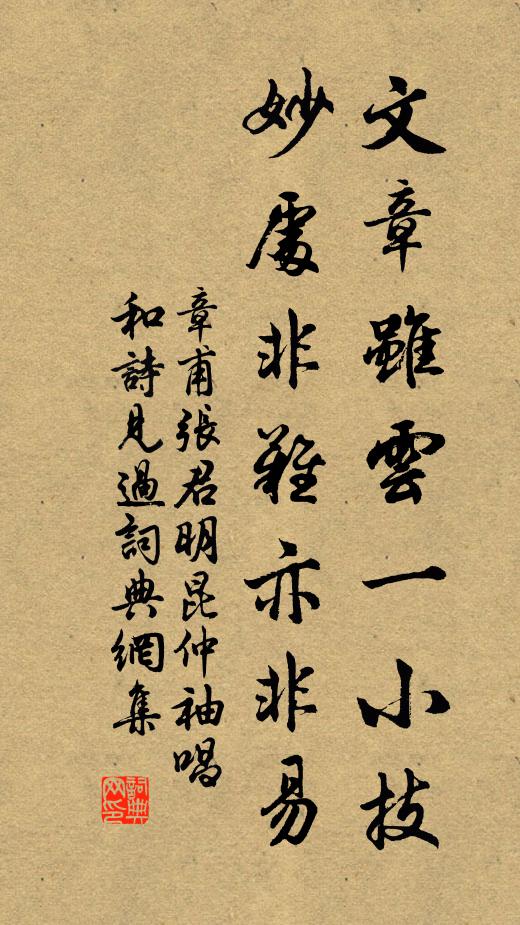 文章雖雲一小技
妙處非難亦非易
章甫張君明昆仲袖唱
和詩見過詞典網集
詞典网印